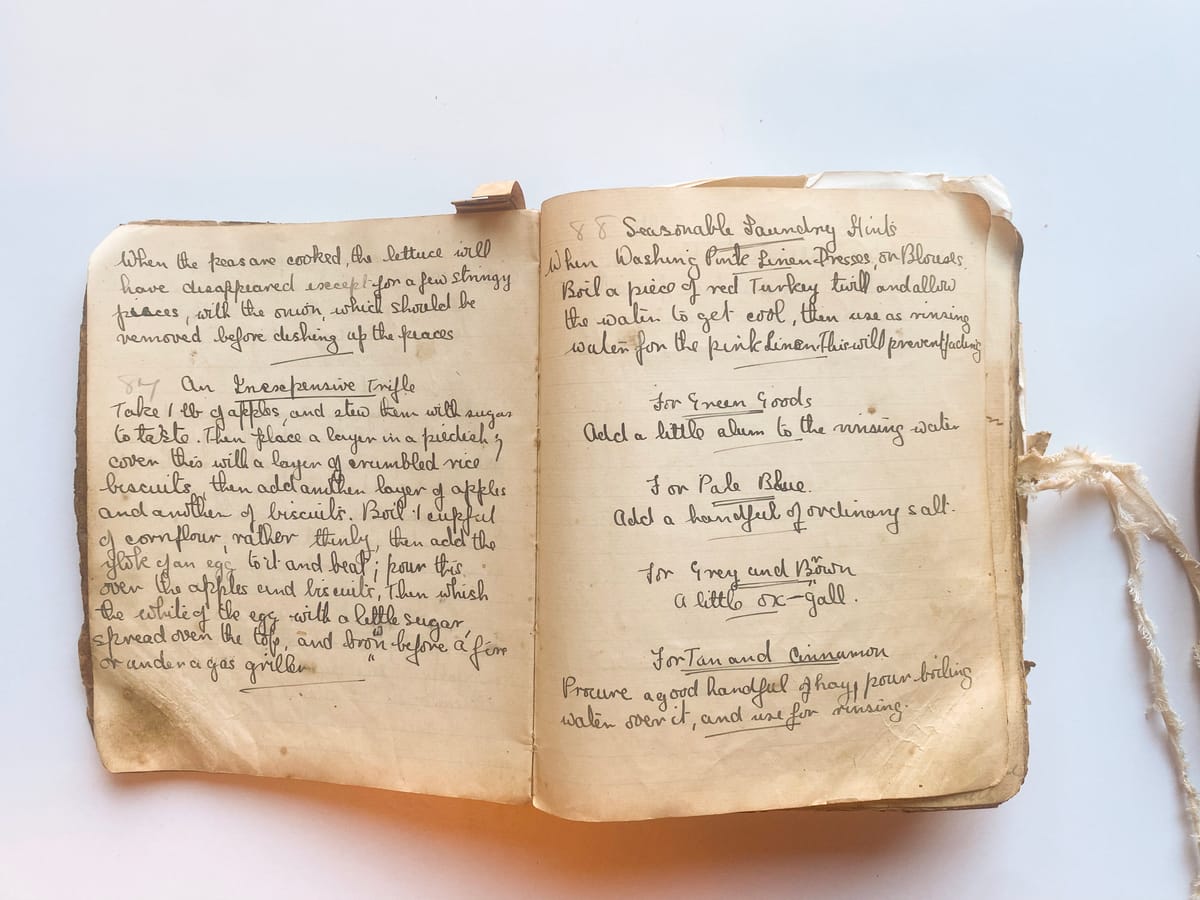 When the peas are cooked, the lettuce will
have disappeared except for a few stringy
pieaces, with the onion, which should be
removed before dishing up the peaces
87 An Inexpensive Trifle
Take 1 lb of apples, and stew them with sugar
to taste. Then place a layer in a piedish;
cover this with a layer of crumbled rice
biscuits, then add another layer of apples
and another of biscuits. Boil 1 cupful
of cornflour, rather thinly, then add the
ylok of an egg to it and beat; pour this
over the apples and biscuits, Then whish
the white of the egg with a little sugar,
spread over the top, and brown before a fire
or under a gas griller
88 Seasonable Laundry Hints
When Washing Pink Linen Dresses, or Blouses.
Boil a piece of red Turkey twill and allow
the water to get cool, then use as rinsing
water for the pink Linen. This will prevent fading
For Green Goods
Add a little alum to the rinsing water
For Pale Blue.
Add a handful of ordinary salt.
For Grey and Brown
A little ox-gall.
For Tan and Cinnamon
Procure a good handful of hay, pour boiling
water over it, and use for rinsing.